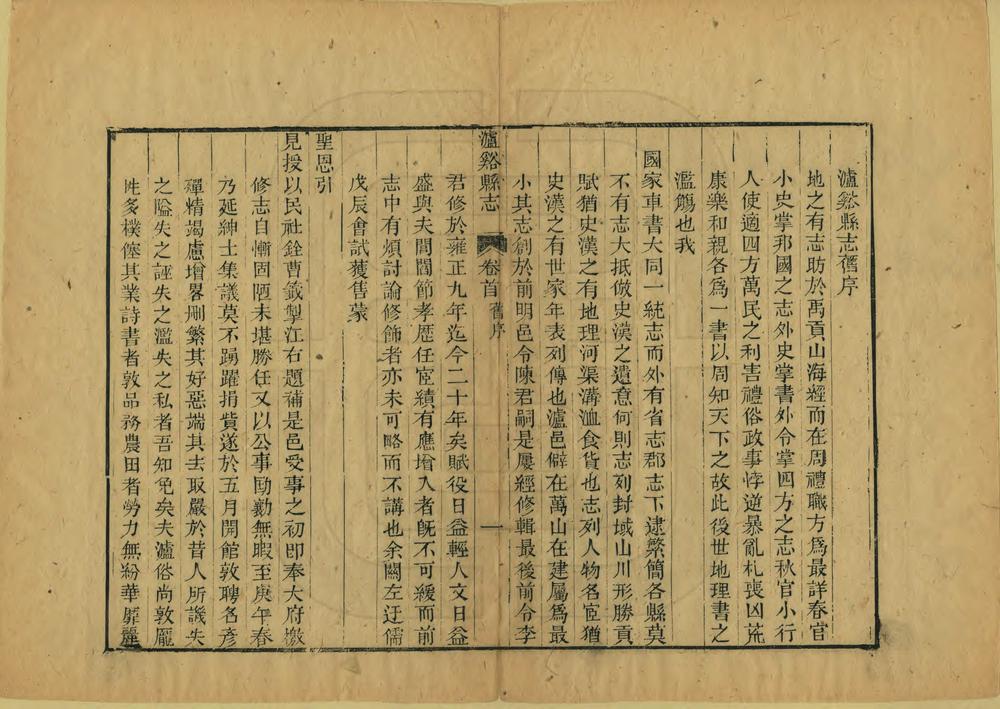 瀘谿縣志舊序
地之有志昉於禹貢山海經而在周禮職方爲最詳春官
小史掌邦國之志外史掌書外令掌四方之志秋官小行
人使適四方萬民之利害禮俗政事悖逆暴亂札喪凶荒
康樂和親各爲一書以周知天下之故此後世地理書之
濫觴也我
國家車書大同一統志而外有省志郡志下逮繁簡各縣莫
不有志大抵倣史漢之遺意何則志列封域山川形勝貢
賦猶史漢之有地理河渠溝洫食貨也志列人物名宦猶
史漢之有世家年表列傳也瀘邑僻在萬山在建屬爲最
小其志創於前明邑令陳君嗣是屢經修輯最後前令李
瀘谿縣志 卷首 舊序 一
君修於雍正九年迄今二十年矣賦役日益輕人文日益
盛與夫閭閻節孝歷任宦績有應增入者旣不可緩而前
志中有煩討論修飾者亦未可略而不講也余閩左迂儒
戊辰會試獲售蒙
聖恩引
見授以民社銓曹籤掣江右題補是邑受事之初即奉大府檄
修志自慚固陋未堪勝任又以公事劻勷無暇至庚午春
乃延紳士集議莫不踴躍捐貲遂於五月開館敦聘名彥
殫精竭慮增畧刪繁其好惡端其去取嚴於昔人所譏失
之隘失之誣失之濫失之私者吾知免矣夫瀘俗尚敦龐
性多樸僿其業詩書者敦品務農田者勞力無紛華靡麗